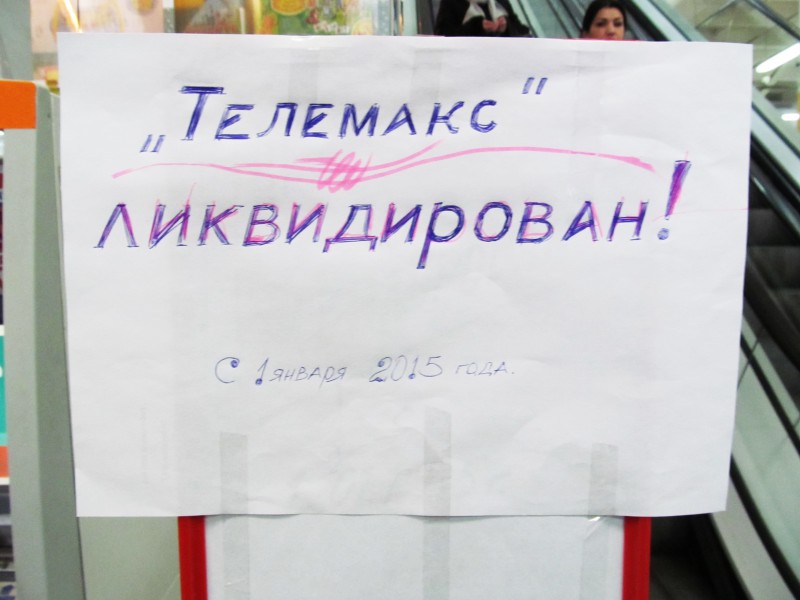 „Телемакс"
ликвидирован!
С 1 января 2015 года.